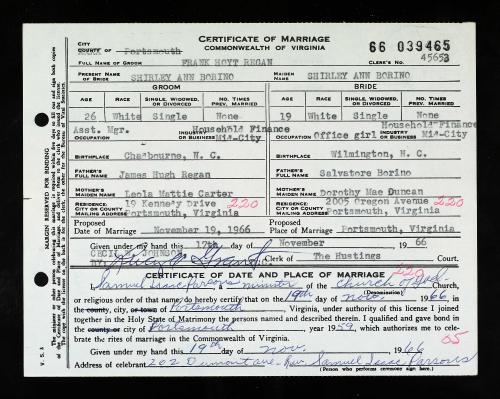 CERTIFICATE OF MARRIAGE
COMMONWEALTH OF VIRGINIA
66 039465
CITY
COUNTY of Portsmouth
45653
CLERK'S NO.
FULL NAME OF GROOM FRANK HOYT REGAN
PRESENT NAME OF BRIDE SHIRLEY ANN BORINO MAIDEN NAME SHIRLEY ANN BORINO
GROOM BRIDE
AGE RACE SINGLE, WIDOWED, OR DIVORCED NO. TIMES PREV. MARRIED AGE RACE SINGLE, WIDOWED, OR DIVORCED NO. TIMES PREV. MARRIED
26 White Single None 19 White Single None
Asst. Mgr. Household Finance Household Finance
OCCUPATION INDUSTRY OR BUSINESS Mid-City Office girl OCCUPATION INDUSTRY OR BUSINESS Mid-City
BIRTHPLACE Chadbourne, N. C. BIRTHPLACE Wilmington, N. C.
FATHER'S FULL NAME James Hugh Regan FATHER'S FULL NAME Salvatore Borino
MOTHER'S MAIDEN NAME Leola Mattie Carter MOTHER'S MAIDEN NAME Dorothy Mae Duncan
RESIDENCE: CITY OR COUNTY MAILING ADDRESS 19 Kennedy Drive 220 RESIDENCE: CITY OR COUNTY MAILING ADDRESS 2005 Oregon Avenue 220
Portsmouth, Virginia Portsmouth, Virginia
Proposed Date of Marriage November 19, 1966 Proposed Place of Marriage Portsmouth, Virginia
Given under my hand this 17th day of November 1966
CECIL F. JOHNSON
Clerk of The Hustings Court.
CERTIFICATE OF DATE AND PLACE OF MARRIAGE 220
I, Samuel Isaac Parsons a minister of the Church of God Church,
(Denomination)
or religious order of that name, do hereby certify that on the 19th day of Nov. 1966, in
the county, city, or town of Portsmouth, Virginia, under authority of this license I joined
together in the Holy State of Matrimony the persons named and described therein. I qualified and gave bond in
the county or city of Portsmouth year 1959, which authorizes me to cele-
brate the rites of marriage in the Commonwealth of Virginia.
05
Given under my hand this 19th day of Nov. 1966
Address of celebrant 202 Dumont ave. Rev. Samuel Isaac Parsons
(Person who performs ceremony sign here.)
MARGIN RESERVED FOR BINDING
V. S. 3